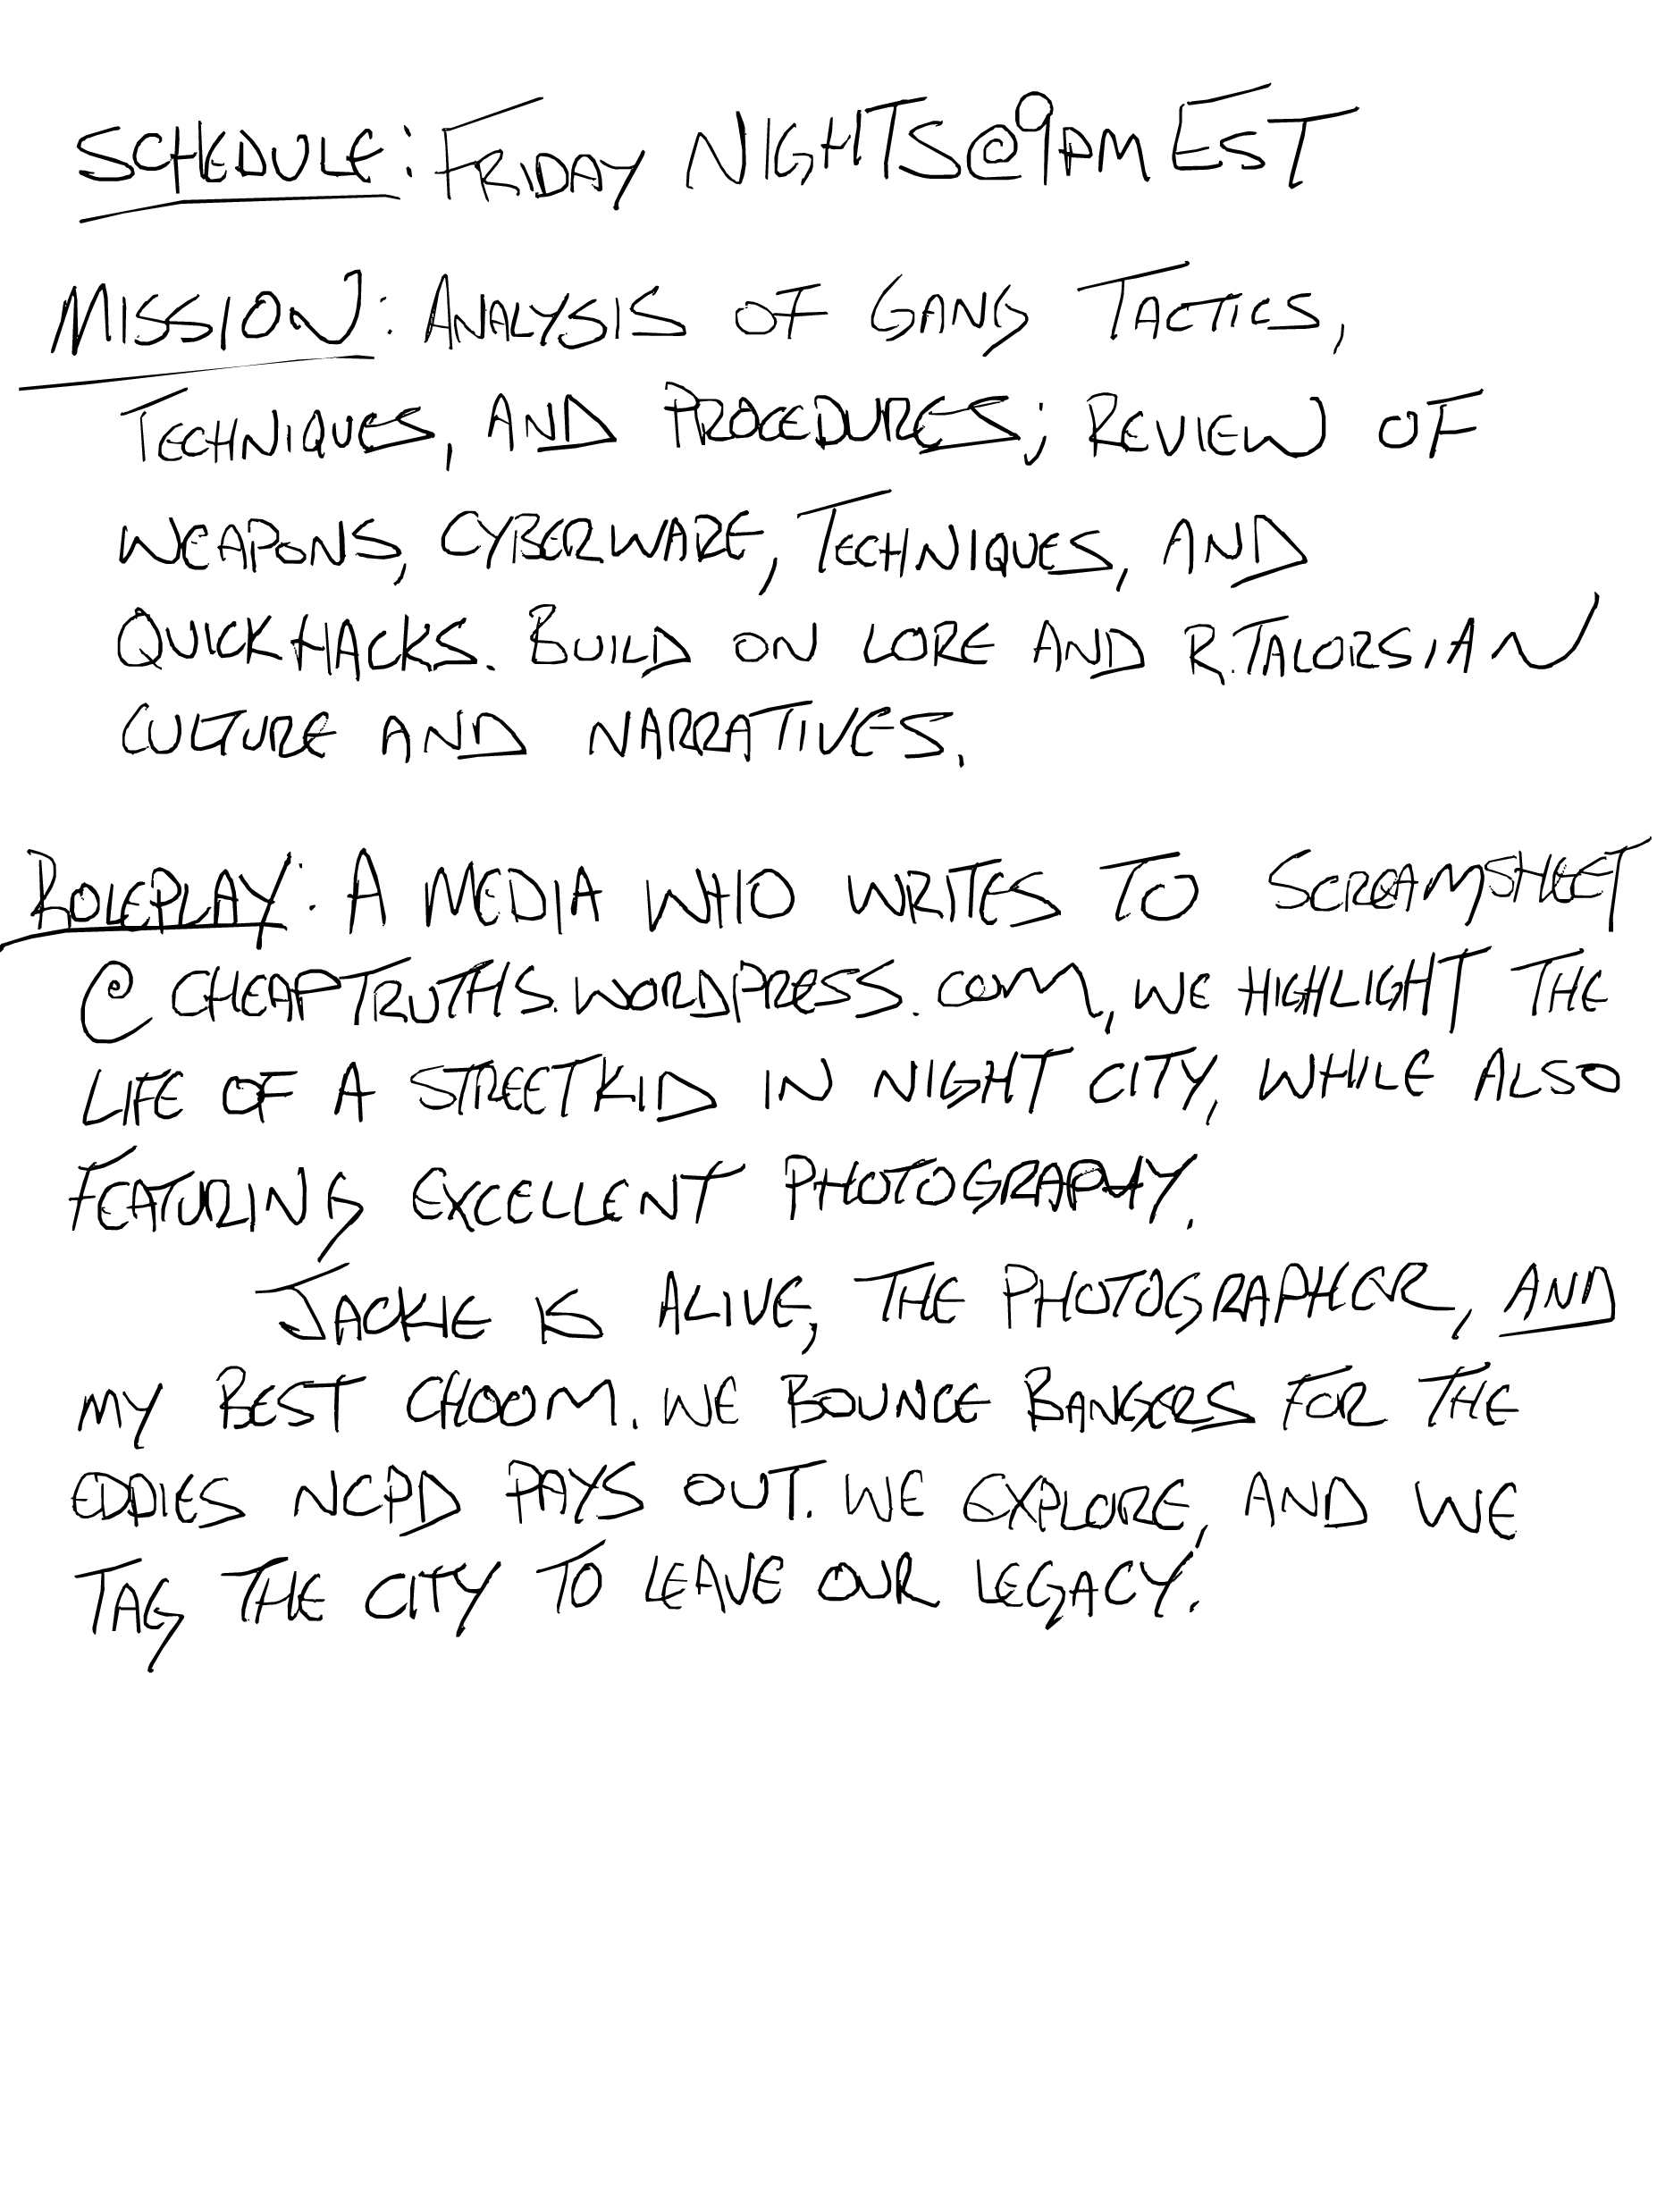 SCHEDULE: FRIDAY NIGHTS@9PM EST
MISSION: ANALYSIS OF GANG TACTICS,
TECHNIQUES, AND PROCEDURES; REVIEW OF
WEAPONS, CYBERWARE, TECHNIQUES, AND
QUICKHACKS. BUILD ON LORE AND R.TALORSIAN
CULTURE AND NARRATIVES.
ROLEPLAY: A MEDIA WHO WRITES TO SCREAMSHEET
@ CHEAPTRUTHS.WORDPRESS.COM, WE HIGHLIGHT THE
LIFE OF A STREETKID IN NIGHT CITY, WHILE ALSO
FEATURING EXCELLENT PHOTOGRAPHY.
JACKIE IS ALIVE, THE PHOTOGRAPHER, AND
MY BEST CHOOM. WE BOUNCE BANGERS FOR THE
EDDIES NCPD PAYS OUT. WE EXPLORE, AND WE
TAG THE CITY TO LEAVE OUR LEGACY.